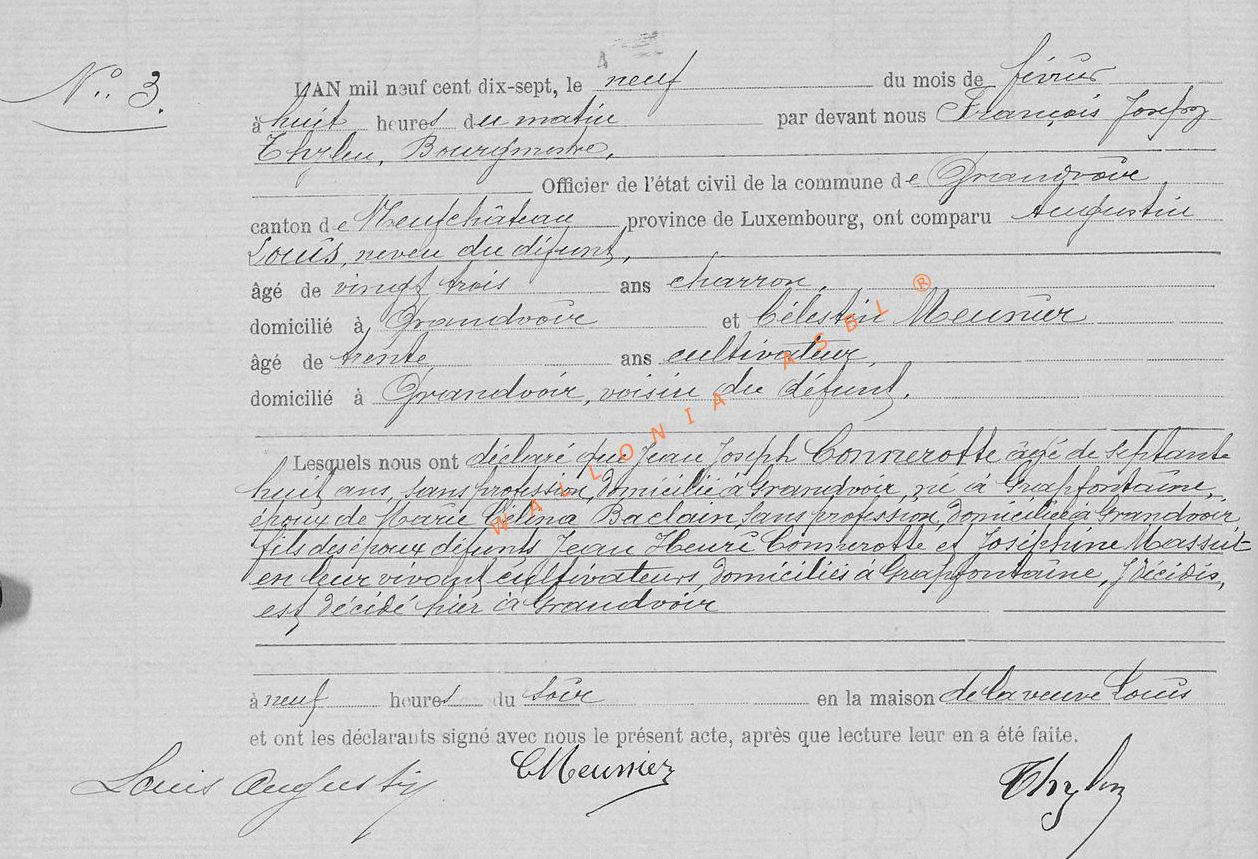 N° 3.
L'AN mil neuf cent dix-sept, le neuf du mois de février
à huit heures du matin par devant nous François Joseph
Bourgmestre,
Officier de l'état civil de la commune de Grandvoir
canton de Neufchâteau, province de Luxembourg, ont comparu Augustin
Louis, neveu du défunt,
âgé de vingt trois ans charron,
domicilié à Grandvoir et Célestin Meunier
âgé de trente ans cultivateur,
domicilié à Grandvoir, voisin du défunt.
Lesquels nous ont déclaré que Jean Joseph Connerotte âgé de septante
huit ans, sans profession, domicilié à Grandvoir, né à Grapfontaine,
époux de Marie Célina Baclain, sans profession, domiciliée à Grandvoir,
fils des époux défunts Jean Henri Connerotte et Joséphine Massut
en leur vivant cultivateurs, domiciliés à Grapfontaine, y décédés,
est décédé hier à Grandvoir
à neuf heures du soir en la maison de la veuve Louis
et ont les déclarants signé avec nous le présent acte, après que lecture leur en a été faite.
Louis Augustin CMeunier
WALLONIA ASBL ®